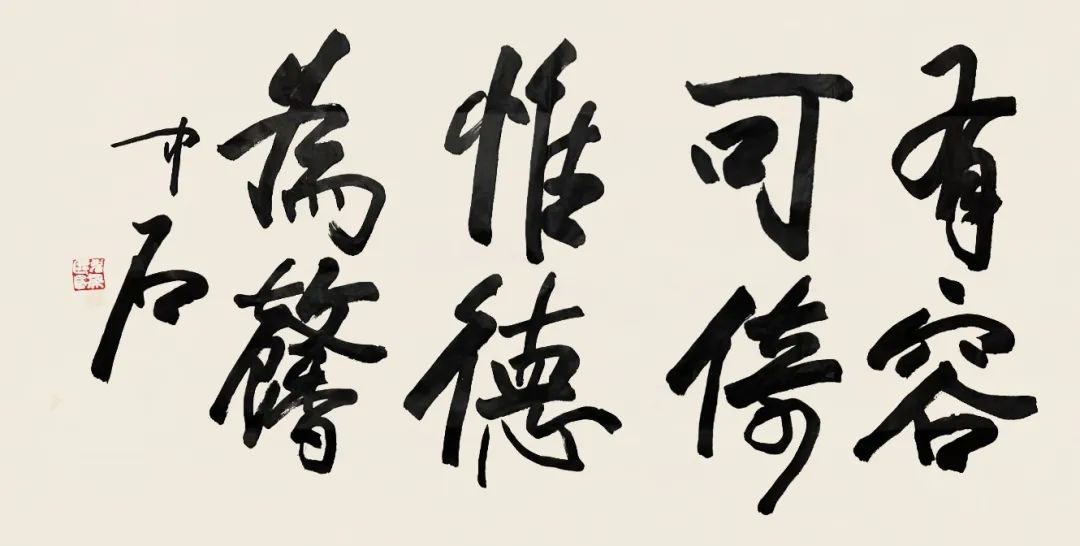 有容
可倚
惟德
為馨
中石